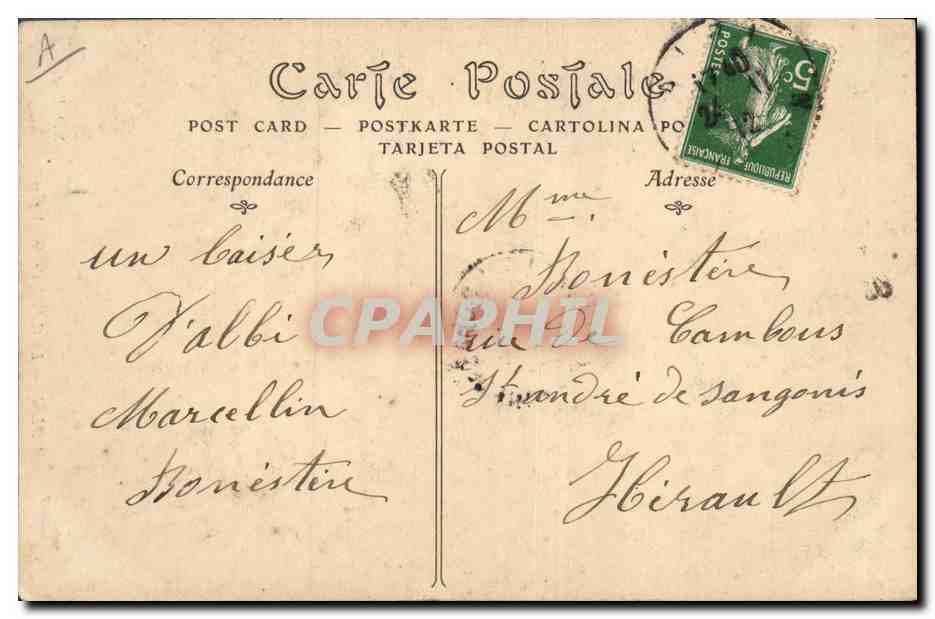 A
Carte Postale
POST CARD — POSTKARTE — CARTOLINA PO
TARJETA POSTAL
5c
POSTES
REPUBLIQUE FRANÇAISE
Correspondance
un baiser
D'albi
Marcellin
Bonéstève
Adresse
Mme
Bonéstève
rue De Cambous
St andré de sangonis
Hérault
CPAPHIL